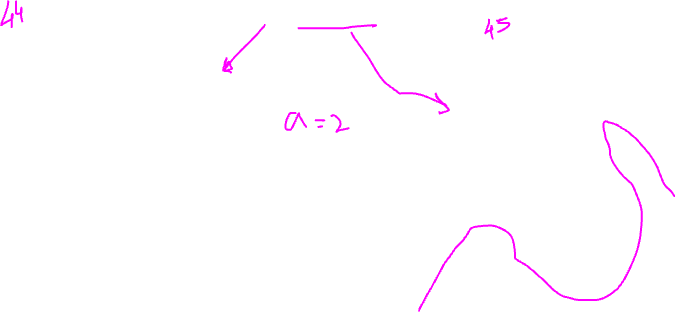 44
45
a=2